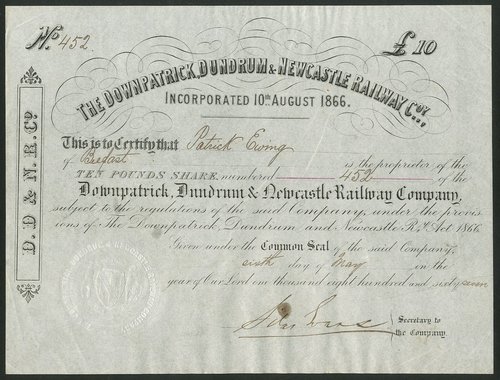 No. 452.
£ 10
THE DOWNPATRICK, DUNDRUM & NEWCASTLE RAILWAY COY.,
INCORPORATED 10th AUGUST 1866.
D. D & N. R. Co.
This is to Certify that Patrick Ewing
of Belfast is the proprietor of the
TEN POUNDS SHARE, numbered 452 of the
Downpatrick, Dundrum & Newcastle Railway Company,
subject to the regulations of the said Company, under the provis
ions of The Downpatrick, Dundrum and Newcastle Ry. Act 1866
Given under the Common Seal of the said Company,
sixth day of May on the
year of Our Lord one thousand eight hundred and sixty seven
Secretary to
the Company.